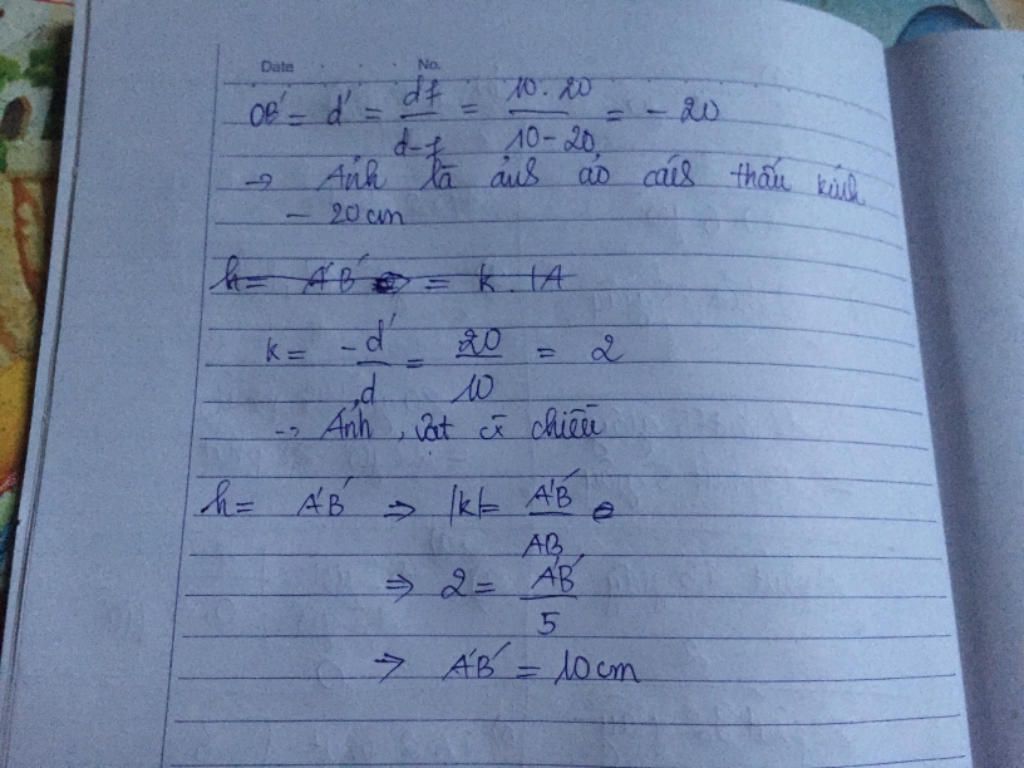 Date . . . No.
OB' = d' = df/d-f = 10.20/10-20 = - 20
→ Ảnh là ảnh ảo cách thấu kính
- 20cm
h = A'B' = k . |A
k = -d'/d = 20/10 = 2
→ Ảnh, vật chiều
h = A'B' ⇒ |k| = A'B'/AB
⇒ 2 = A'B'/5
⇒ A'B' = 10cm